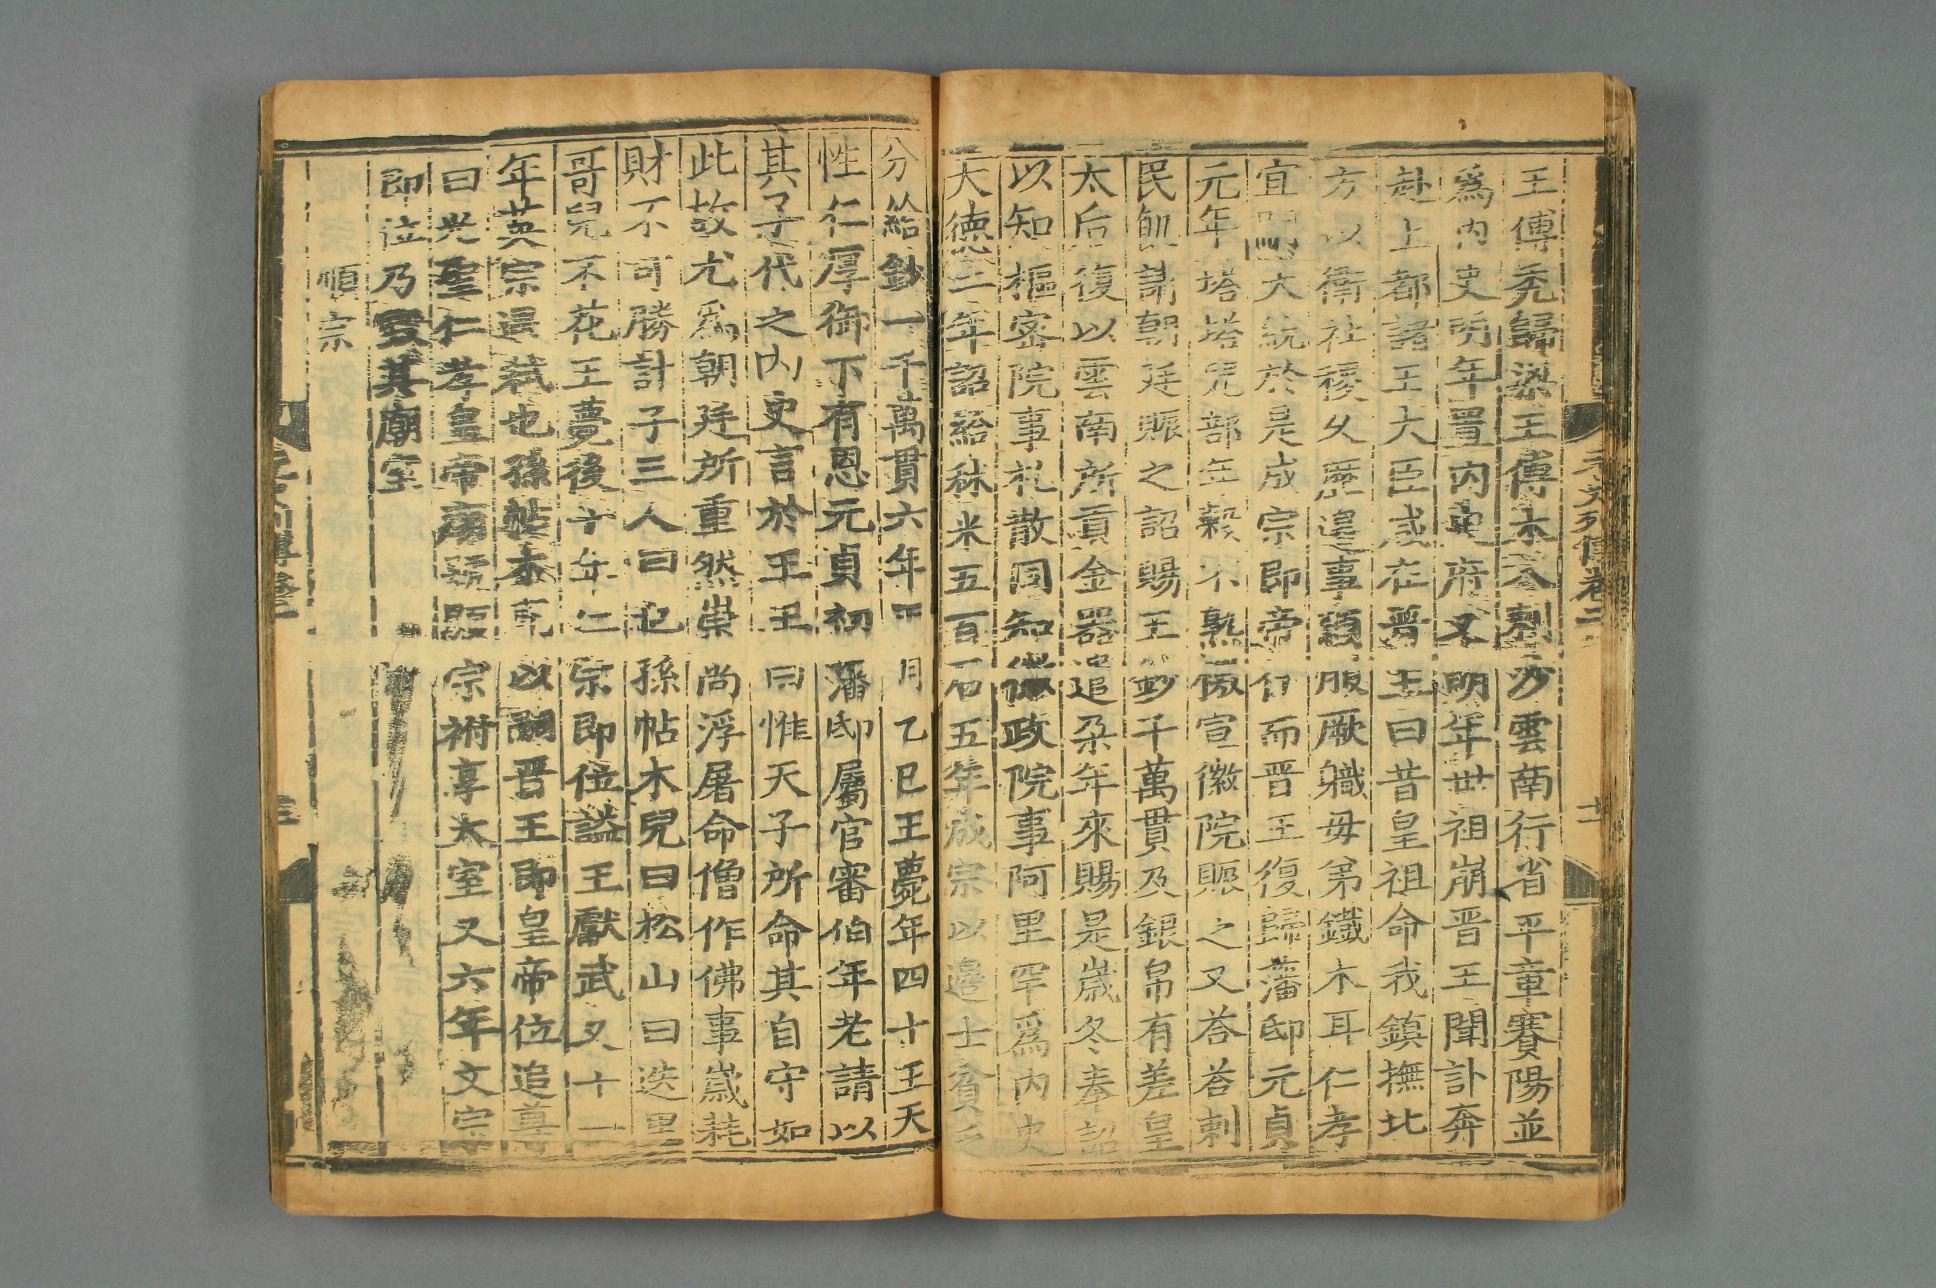 王傅禿歸梁王傅木八剌沙雲南行省平章賽陽並
爲内史明年置内史府又明年世祖崩晋王聞訃奔
赴上都諸王大臣咸在晋王曰昔皇祖命我鎮撫北
方以衞社稷久歷邊事願服厥職毋弟鐵木耳仁孝
宜嗣大統於是成宗即帝位而晋王復歸藩邸元貞
元年塔塔兒部年穀不熟檄宣徽院賑之又荅荅剌
民飢請朝廷賑之詔賜王鈔千萬貫及銀帛有差皇
太后復以雲南所貢金器追朶年來賜是歳冬奉詔
以知樞密院事札散同知徽政院事阿里罕爲内史
大德二年詔給秣米五百石五年成宗以邉士貧乏
分給鈔一千萬貫六年正月乙巳王薨年四十王天
性仁厚御下有恩元貞初藩邸屬官審伯年老請以
其子代之内史言於王王曰惟天子所命其自守如
此故尤爲朝廷所重然崇尚浮屠命僧作佛事歳耗
財不可勝計子三人曰也孫帖木兒曰松山曰迭里
哥兒不花王薨後十年仁宗即位謚王獻武又十一
年英宗遇弑也孫帖木兒以嗣晋王即皇帝位追尊
曰光聖仁孝皇帝廟號顯宗祔享太室又六年文宗
即位乃毁其廟室
順宗
元史列傳卷二